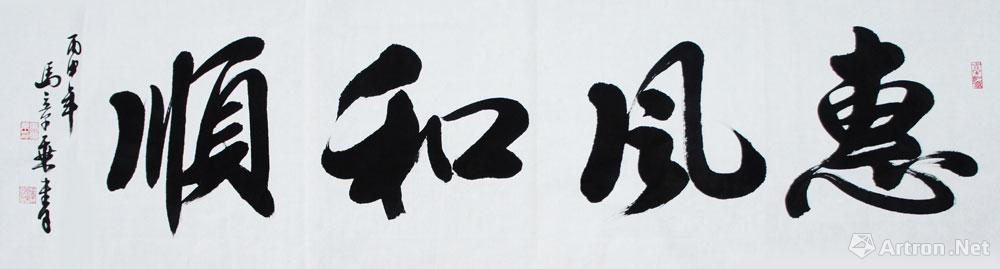 惠风和順
丙申年
馬章乘書
Artron.Net